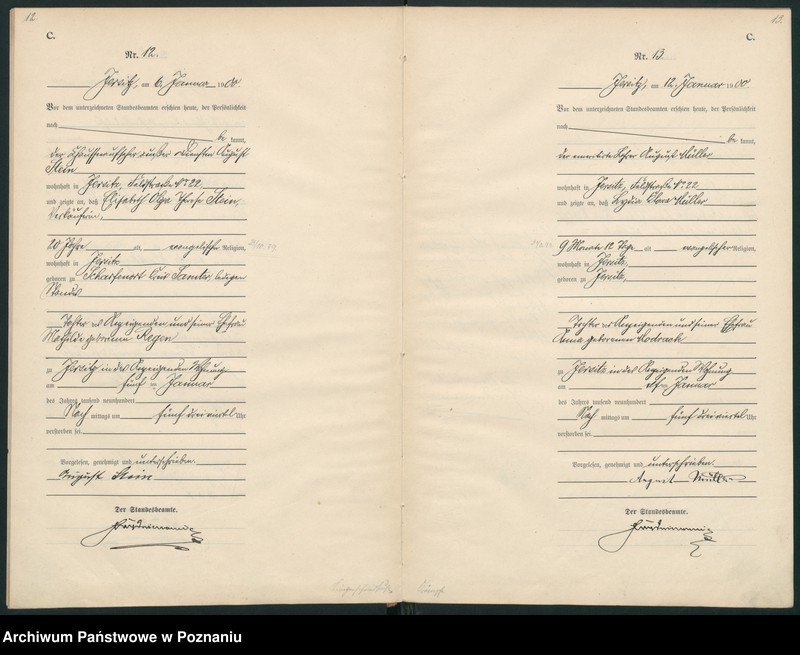 12
C.
Nr. 12.
Jersitz, am 6. Januar 1900.
Vor dem unterzeichneten Standesbeamten erschien heute, der Persönlichkeit
nach
be kannt,
der Chausseeaufseher außer Diensten August
Stein
wohnhaft in Jersitz, Feldstraße Nr. 22
und zeigte an, daß Elisabeth Olga Therese Stein,
Verkäuferin,
20 Jahre alt, evangelischer Religion,
wohnhaft in Jersitz
geboren zu Scharfenort Kreis Samter, ledigen
Standes
Tochter des Anzeigenden und seiner Ehefrau
Mathilde geborenen
zu Jersitz in des Anzeigenden Wohnung
am fünf ten Januar
des Jahres tausend neunhundert
Nach mittags um fünf dreiviertel Uhr
verstorben sei.
Vorgelesen, genehmigt und unterschrieben
August Stein
Der Standesbeamte.
13.
C.
Nr. 13.
Jersitz, am 12. Januar 1900.
Vor dem unterzeichneten Standesbeamten erschien heute, der Persönlichkeit
nach
be kannt,
der emeritirte Lehrer August Müller
wohnhaft in Jersitz, Feldstraße Nr. 22
und zeigte an, daß Lydia Clara Müller
9 Monate 12 Tage alt evangelischer Religion,
wohnhaft in Jersitz,
geboren zu Jersitz,
Tochter des Anzeigenden und seiner Ehefrau
Anna geborenen
zu Jersitz in des Anzeigenden Wohnung
am elf ten Januar
des Jahres tausend neunhundert
Nach mittags um fünf dreiviertel Uhr
verstorben sei.
Vorgelesen, genehmigt und unterschrieben
August Müller
Der Standesbeamte.
Archiwum Państwowe w Poznaniu